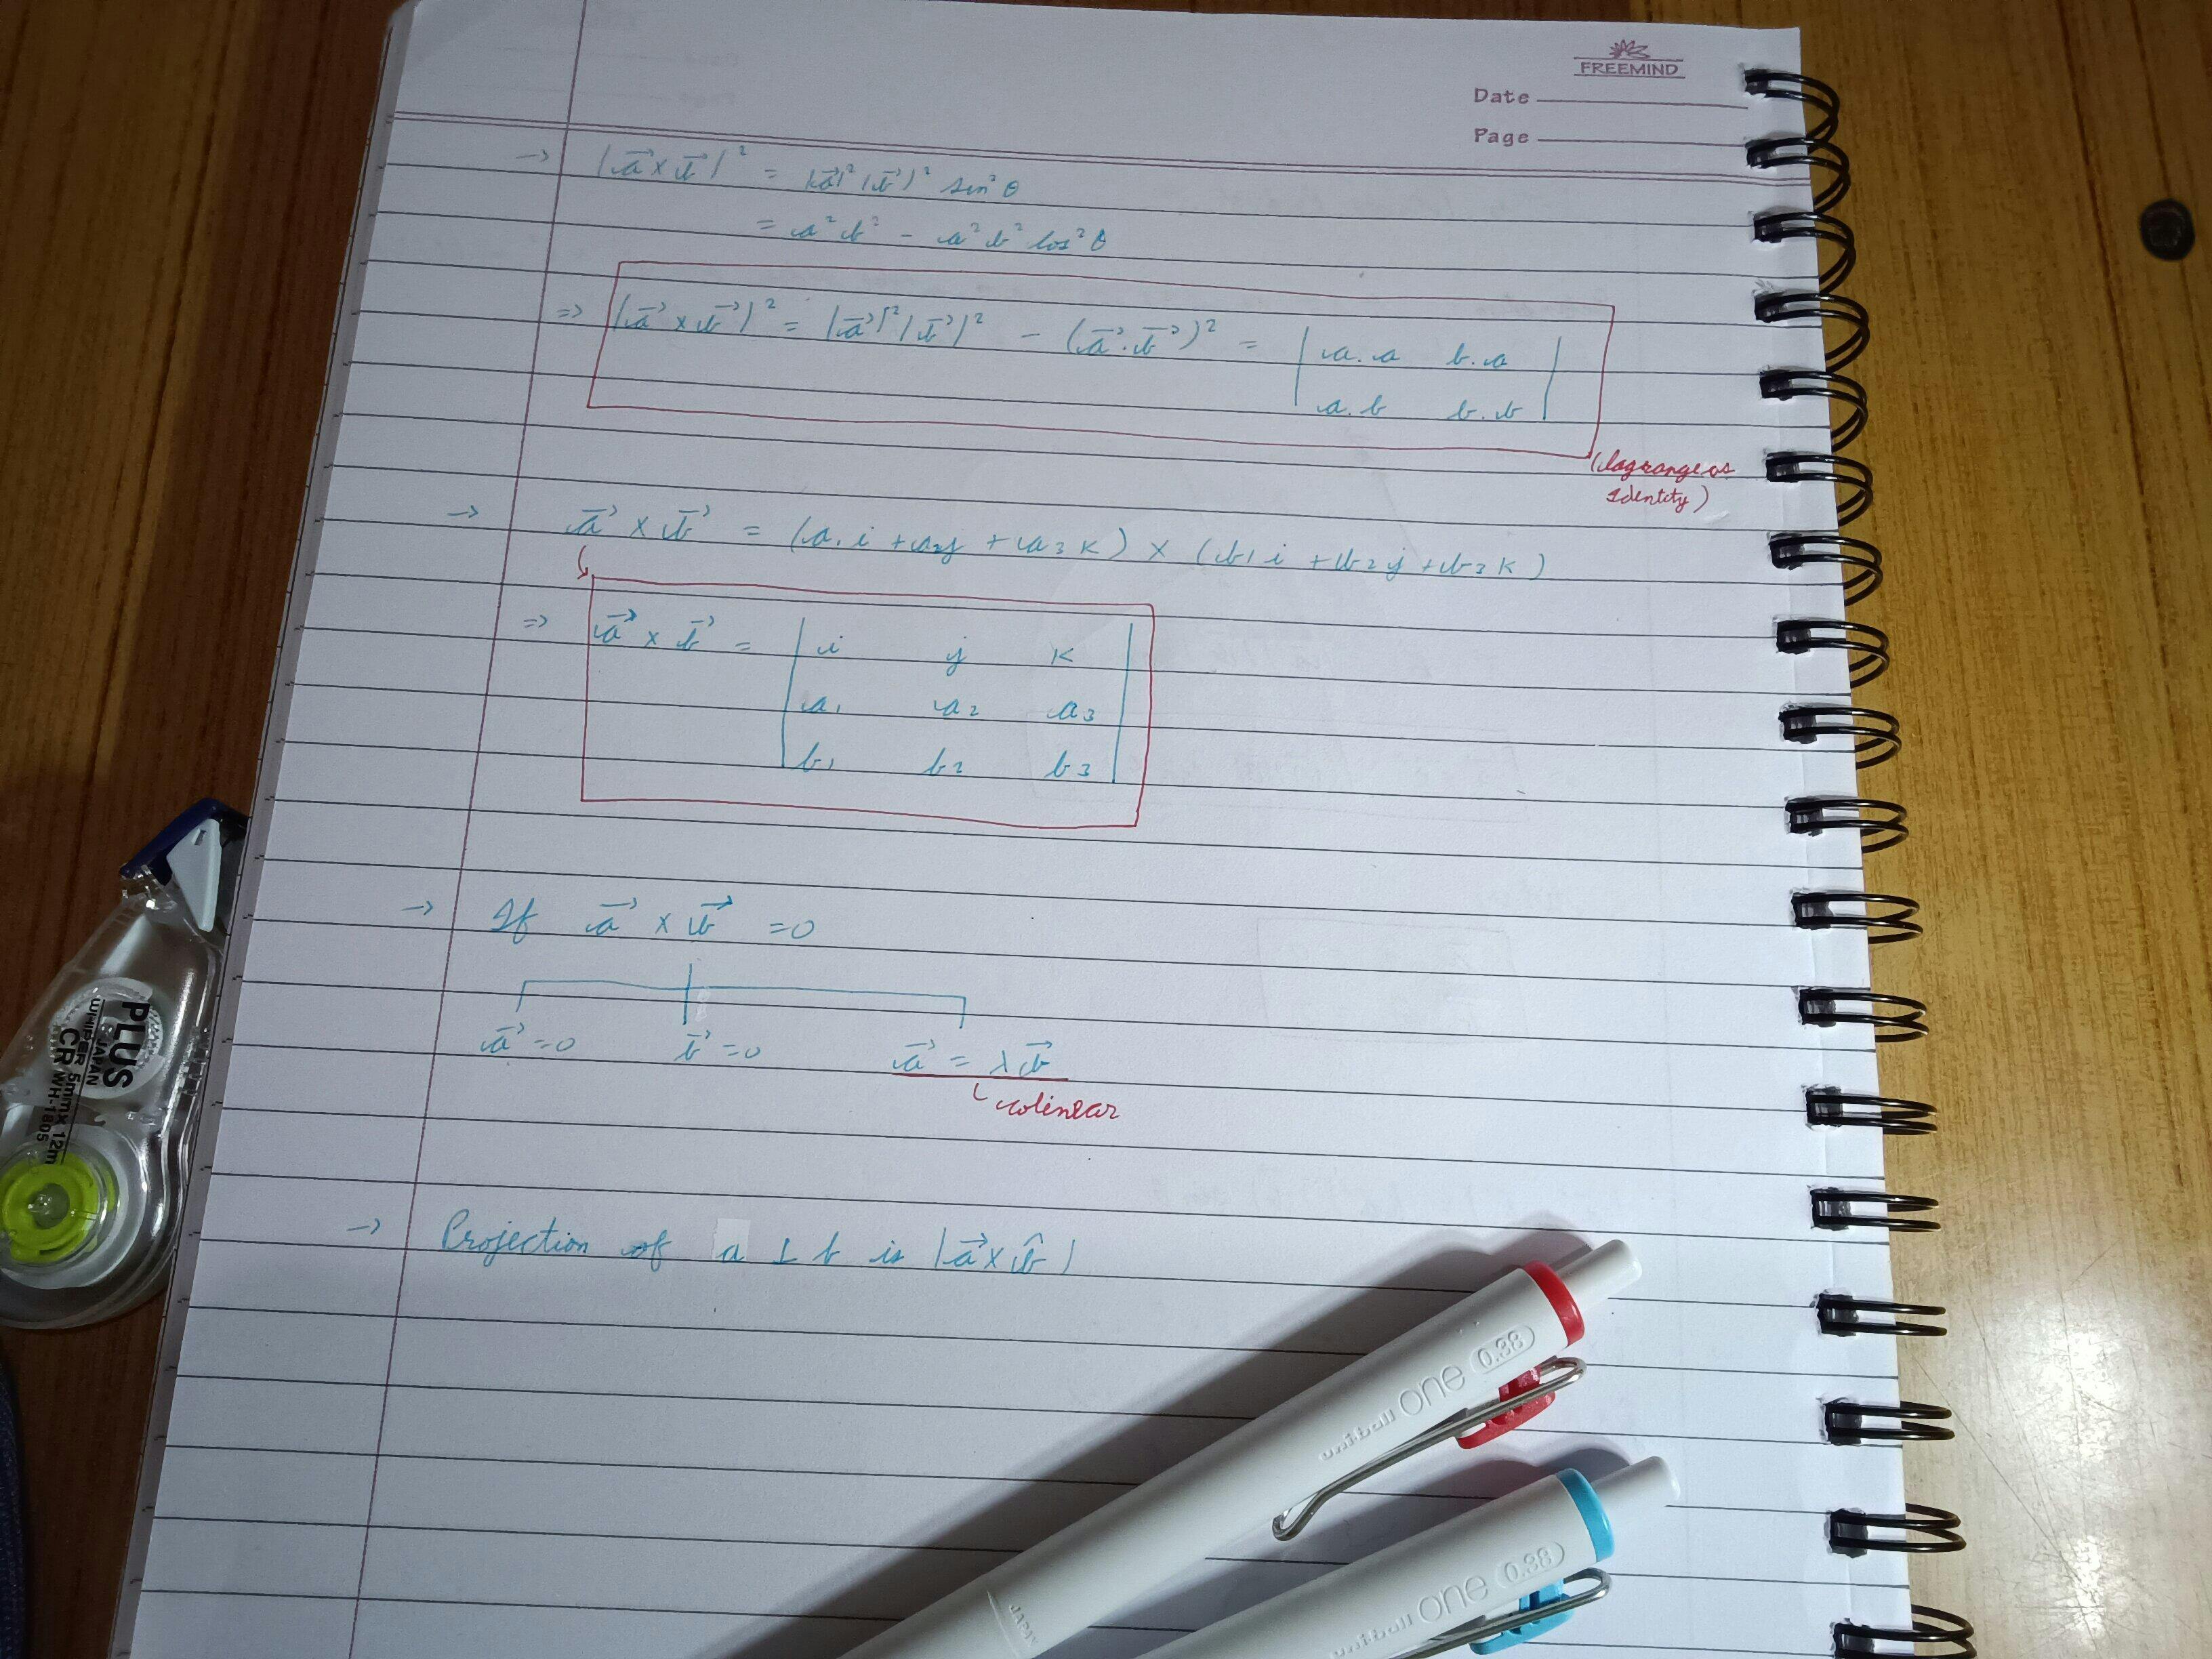 FREEMIND
Date
Page
→ |a⃗ × b⃗|² = |a⃗|² |b⃗|² sin² θ
= a² b² - a² b² cos² θ
⇒ |a⃗ × b⃗|² = |a⃗|² |b⃗|² - (a⃗ . b⃗)² = | a.a b.a |
| a.b b.b |
(lagranges
Identity)
→ a⃗ × b⃗ = (a₁ i + a₂ j + a₃ k) × (b₁ i + b₂ j + b₃ k)
⇒ a⃗ × b⃗ = | i j k |
| a₁ a₂ a₃ |
| b₁ b₂ b₃ |
→ If a⃗ × b⃗ = 0
a⃗ = 0 b⃗ = 0 a⃗ = λ b⃗
colinear
→ Projection of a ⊥ b is |a⃗ × b̂|
PLUS
JAPAN
WHIPER
CR 5mm×12m
WH-1805
uni-ball one 0.38
JAPAN
uni-ball one 0.38